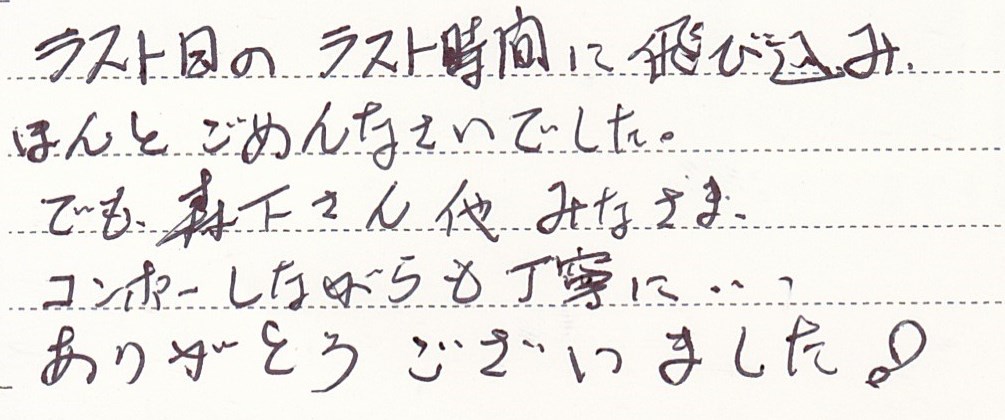 ラスト日の ラスト時間に飛び込み、
ほんと ごめんなさいでした。
でも、森下さん 他 みなさま、
コンボーしながらも丁寧に・・・
ありがとうございました!